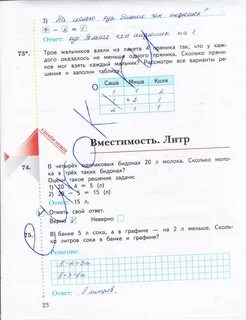 3) На сколько кур больше чем индюшек?
7 - 6 = 1
Ответ: кур больше чем индюшек на 1
73*. Трое мальчиков взяли из пакета 4 пряника так, что у каж-
дого оказалось не меньше одного пряника. Сколько пряни-
ков мог взять каждый мальчик? Рассмотри все варианты
решения и заполни таблицу.
Саша Миша Коля
Вместимость. Литр
74. В четырёх одинаковых бидонах 20 л молока. Сколько моло-
ка в трёх таких бидонах?
Оцени такое решение задачи:
1) 20 : 4 = 5 (л)
2) 20 - 5 = 15 (л)
Ответ: 15 л.
Отметь свой ответ.
Верно Неверно
75. В банке 5 л сока, а в графине — на 2 л меньше. Сколь-
ко литров сока в банке и графине?
Решение.
Ответ: 8 литров.
23